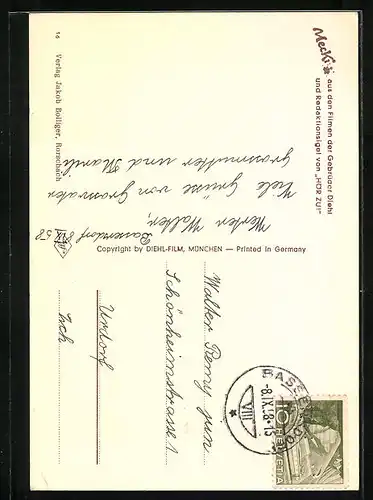 Mecki
aus den Filmen der Gebrüder Diehl
und Redaktionsigel von „HÖR ZU!"
Bassersdorf 8. IX. 58
Werter Walter,
Viele Grüsse von Grossvater
grossmutter und
16 Verlag Jakob Bolliger, Rorschach
Copyright by DIEHL-FILM, MÜNCHEN — Printed in Germany
Walter Remy jun
Schönheimstrasse 1
Urdorf
Zch
BASSERSDORF
-8.IX.58-15
VIII
10
HELVETIA